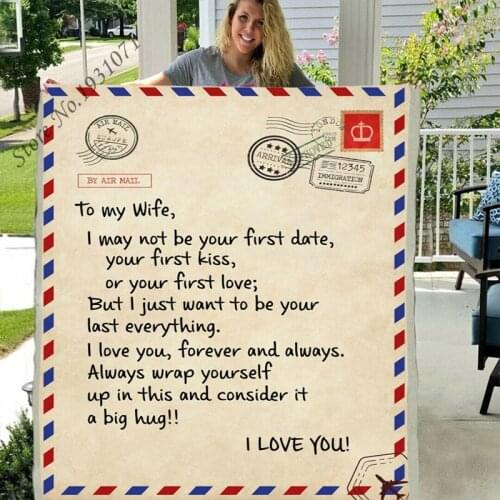 Store No.:1931071
AIR MAIL
LONDON
ARRIVAL
12345
IMMIGRATION
BY AIR MAIL
To my Wife,
I may not be your first date,
your first kiss,
or your first love;
But I just want to be your
last everything.
I love you, forever and always.
Always wrap yourself
up in this and consider it
a big hug!!
I LOVE YOU!